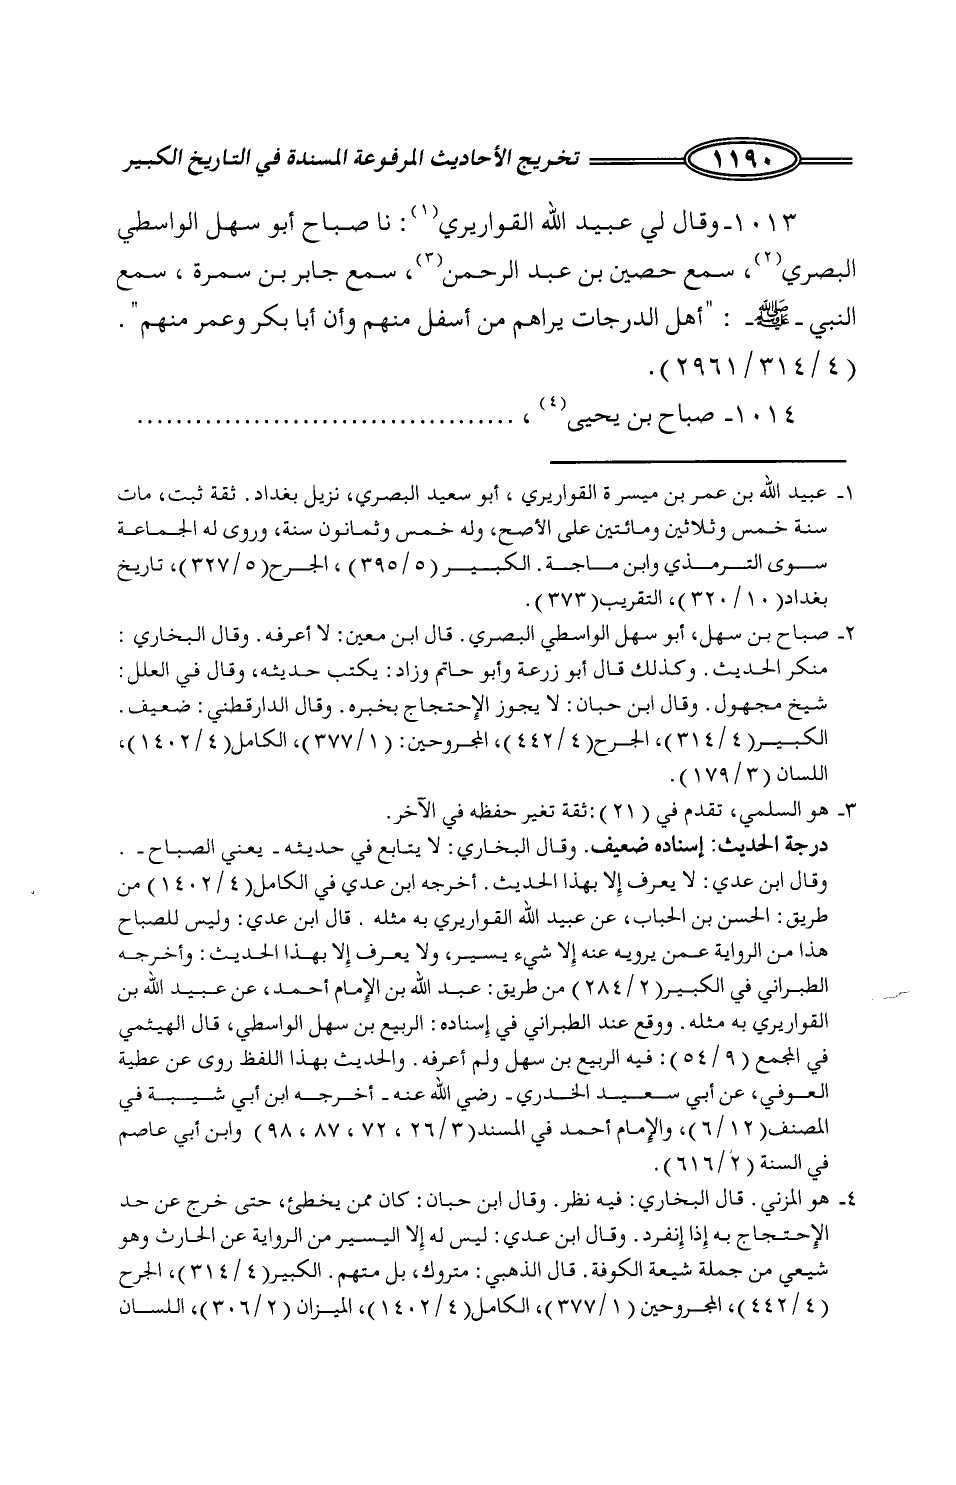 ١١٩٠ تخريج الأحاديث المرفوعة المسندة في التاريخ الكبير
١٠١٣ـ وقال لي عبيد الله القواريري(١): نا صباح أبو سهل الواسطي
البصري(٢)، سمع حصين بن عبد الرحمن(٣)، سمع جابر بن سمرة ، سمع
النبي ـ ﷺ ـ : "أهل الدرجات يراهم من أسفل منهم وأن أبا بكر وعمر منهم" .
(٢٩٦١/٣١٤/٤).
١٠١٤ـ صباح بن يحيى(٤) ، ......................................
١ـ عبيد الله بن عمر بن ميسرة القواريري ، أبو سعيد البصري، نزيل بغداد. ثقة ثبت، مات
سنة خمس وثلاثين ومائتين على الأصح، وله خمس وثمانون سنة، وروى له الجماعة
سوى الترمذي وابن ماجة. الكبير (٣٩٥/٥) ، الجرح(٣٢٧/٥)، تاريخ
بغداد(٣٢٠/١٠)، التقريب(٣٧٣).
٢ـ صباح بن سهل، أبو سهل الواسطي البصري. قال ابن معين: لا أعرفه. وقال البخاري :
منكر الحديث. وكذلك قال أبو زرعة وأبو حاتم وزاد: يكتب حديثه، وقال في العلل:
شيخ مجهول. وقال ابن حبان: لا يجوز الإحتجاج بخبره. وقال الدارقطني: ضعيف.
الكبير(٣١٤/٤)، الجرح(٤٤٢/٤)، المجروحين: (٣٧٧/١)، الكامل(١٤٠٢/٤)،
اللسان (١٧٩/٣).
٣ـ هو السلمي، تقدم في (٢١):ثقة تغير حفظه في الآخر.
درجة الحديث: إسناده ضعيف. وقال البخاري: لا يتابع في حديثه ـ يعني الصباح ـ .
وقال ابن عدي: لا يعرف إلا بهذا الحديث. أخرجه ابن عدي في الكامل(١٤٠٢/٤) من
طريق: الحسن بن الحباب، عن عبيد الله القواريري به مثله . قال ابن عدي: وليس للصباح
هذا من الرواية عمن يرويه عنه إلا شيء يسير، ولا يعرف إلا بهذا الحديث: وأخرجه
الطبراني في الكبير(٢٨٤/٢) من طريق: عبد الله بن الإمام أحمد، عن عبيد الله بن
القواريري به مثله. ووقع عند الطبراني في إسناده: الربيع بن سهل الواسطي، قال الهيثمي
في المجمع (٥٤/٩): فيه الربيع بن سهل ولم أعرفه. والحديث بهذا اللفظ روى عن عطية
العوفي، عن أبي سعيد الخدري ـ رضي الله عنه ـ أخرجه ابن أبي شيبة في
المصنف(٦/١٢)، والإمام أحمد في المسند(٢٦/٣ ، ٧٢ ، ٨٧ ، ٩٨) وابن أبي عاصم
في السنة (٦١٦/٢).
٤ـ هو المزني. قال البخاري: فيه نظر. وقال ابن حبان: كان ممن يخطئ، حتى خرج عن حد
الإحتجاج به إذا إنفرد. وقال ابن عدي: ليس له إلا اليسير من الرواية عن الحارث وهو
شيعي من جملة شيعة الكوفة. قال الذهبي: متروك، بل متهم. الكبير(٣١٤/٤)، الجرح
(٤٤٢/٤)، المجروحين (٣٧٧/١)، الكامل(١٤٠٢/٤)، الميزان (٣٠٦/٢)، اللسان